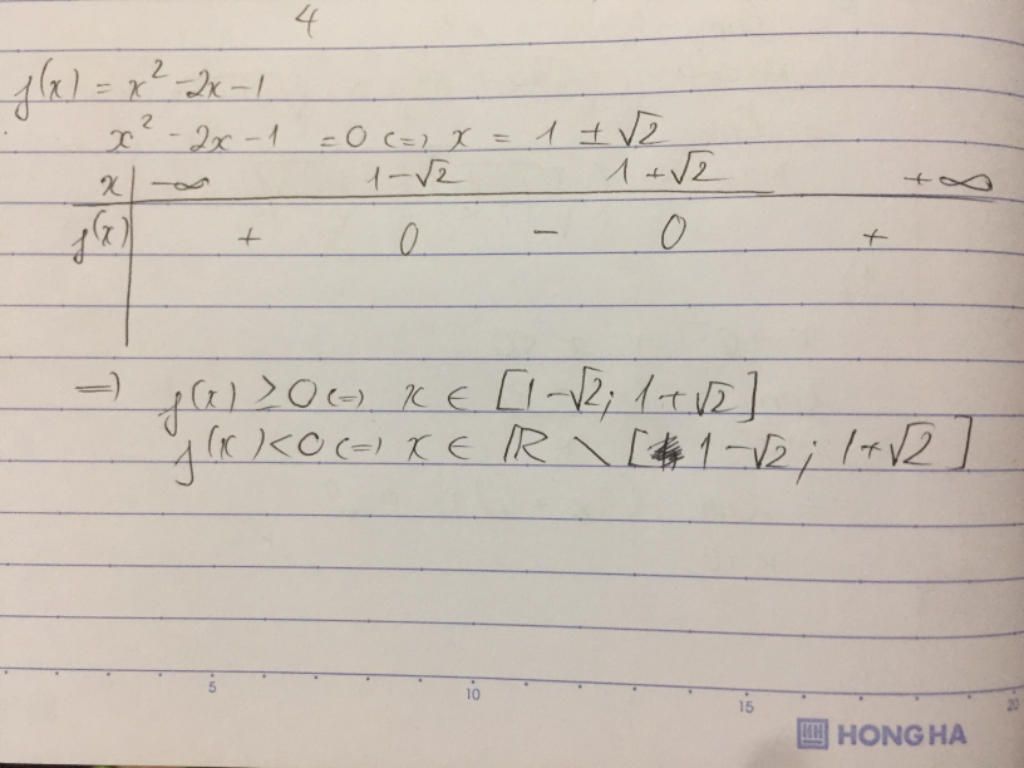 4
f(x) = x² - 2x - 1
x² - 2x - 1 = 0 (=) x = 1 ± √2
x | -∞ 1-√2 1+√2 +∞
f(x) | + 0 - 0 +
=) f(x) ≥ 0 (=) x ∈ [1-√2; 1+√2]
f(x) < 0 (=) x ∈ ℝ \ [1-√2; 1+√2]
5 10 15 20
HONG HA